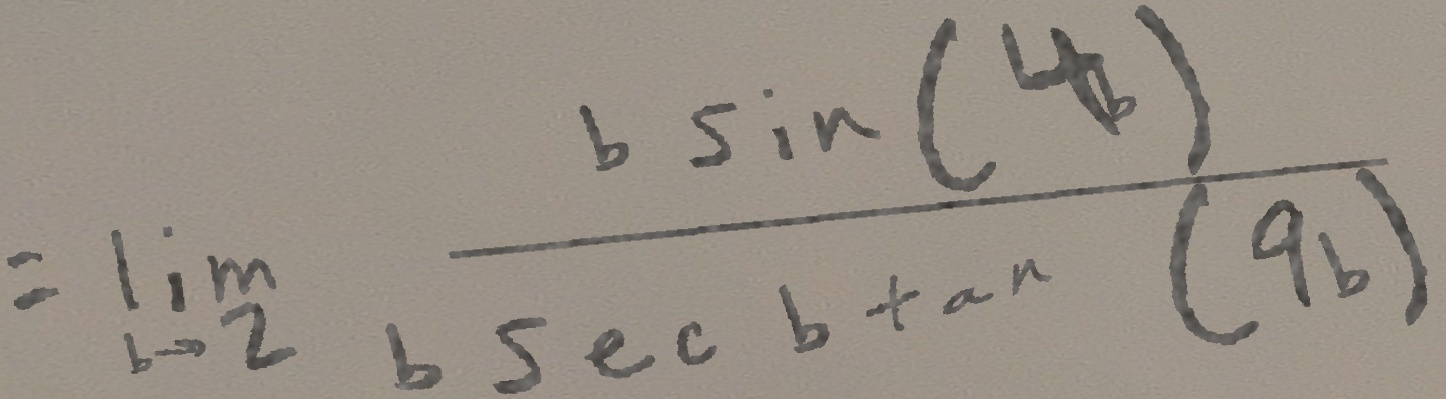 = \lim_{b \to 2} \frac{b \sin(4b)}{b \sec b \tan(9b)}